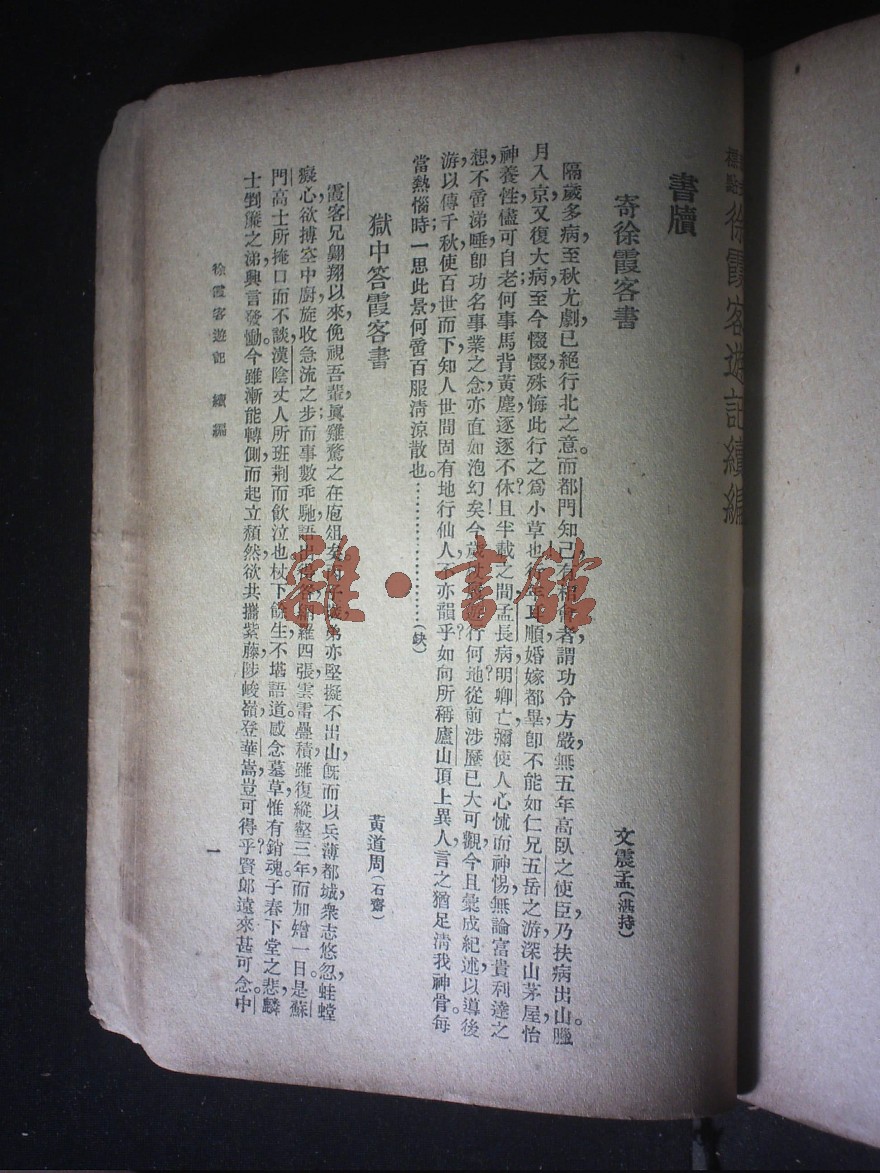 標點
徐霞客遊記續編
書牘
寄徐霞客書
文震孟(湛持)
隔歲多病,至秋尤劇,已絕行北之意。而都門知己,有
者,謂功令方嚴,無五年高臥之使臣,乃扶病出山。臘
月入京,又復大病,至今惙惙,殊悔此行之爲小草也。
年耳順,婚嫁都畢,即不能如仁兄五岳之游,深山茅屋,怡
神養性,儘可自老,何事馬背黃塵,逐逐不休?且半載之間,孟長病,明卿亡,彌使人心怵而神惕,無論富貴利達之
想,不啻涕唾,即功名事業之念,亦直如泡幻矣!今歲
行何地?從前涉歷,已大可觀,今且彙成紀述,以導後
游,以傳千秋,使百世而下,知人世間固有地行仙人,不亦韻乎?如向所稱廬山頂上異人,言之猶足清我神骨。每
當熱惱時,一思此景,何啻百服清涼散也。………………(缺)
獄中答霞客書
黃道周(石齋)
霞客兄翺翔以來,俛視吾輩,眞雞鶩之在庖俎矣。
弟亦堅擬不出山,旣而以兵薄都城,衆志悠忽,蛙螳
癡心,欲搏空中廚,旋收急流之步,而事數乖馳,語
羅四張,雲雷疊積,雖復縱壑三年,而加矰一日。是蘇
門高士所掩口而不談,漢陰丈人所班荆而飲泣也。杖下餘生,不堪語道。感念墓草,惟有銷魂。子春下堂之悲,麟
士剉簾之涕,興言發慟。今雖漸能轉側而起立,頹然欲共攜紫藤,陟峻嶺,登華嵩,豈可得乎?賢郎遠來,甚可念。中
徐霞客遊記 續編
一
雜·書館